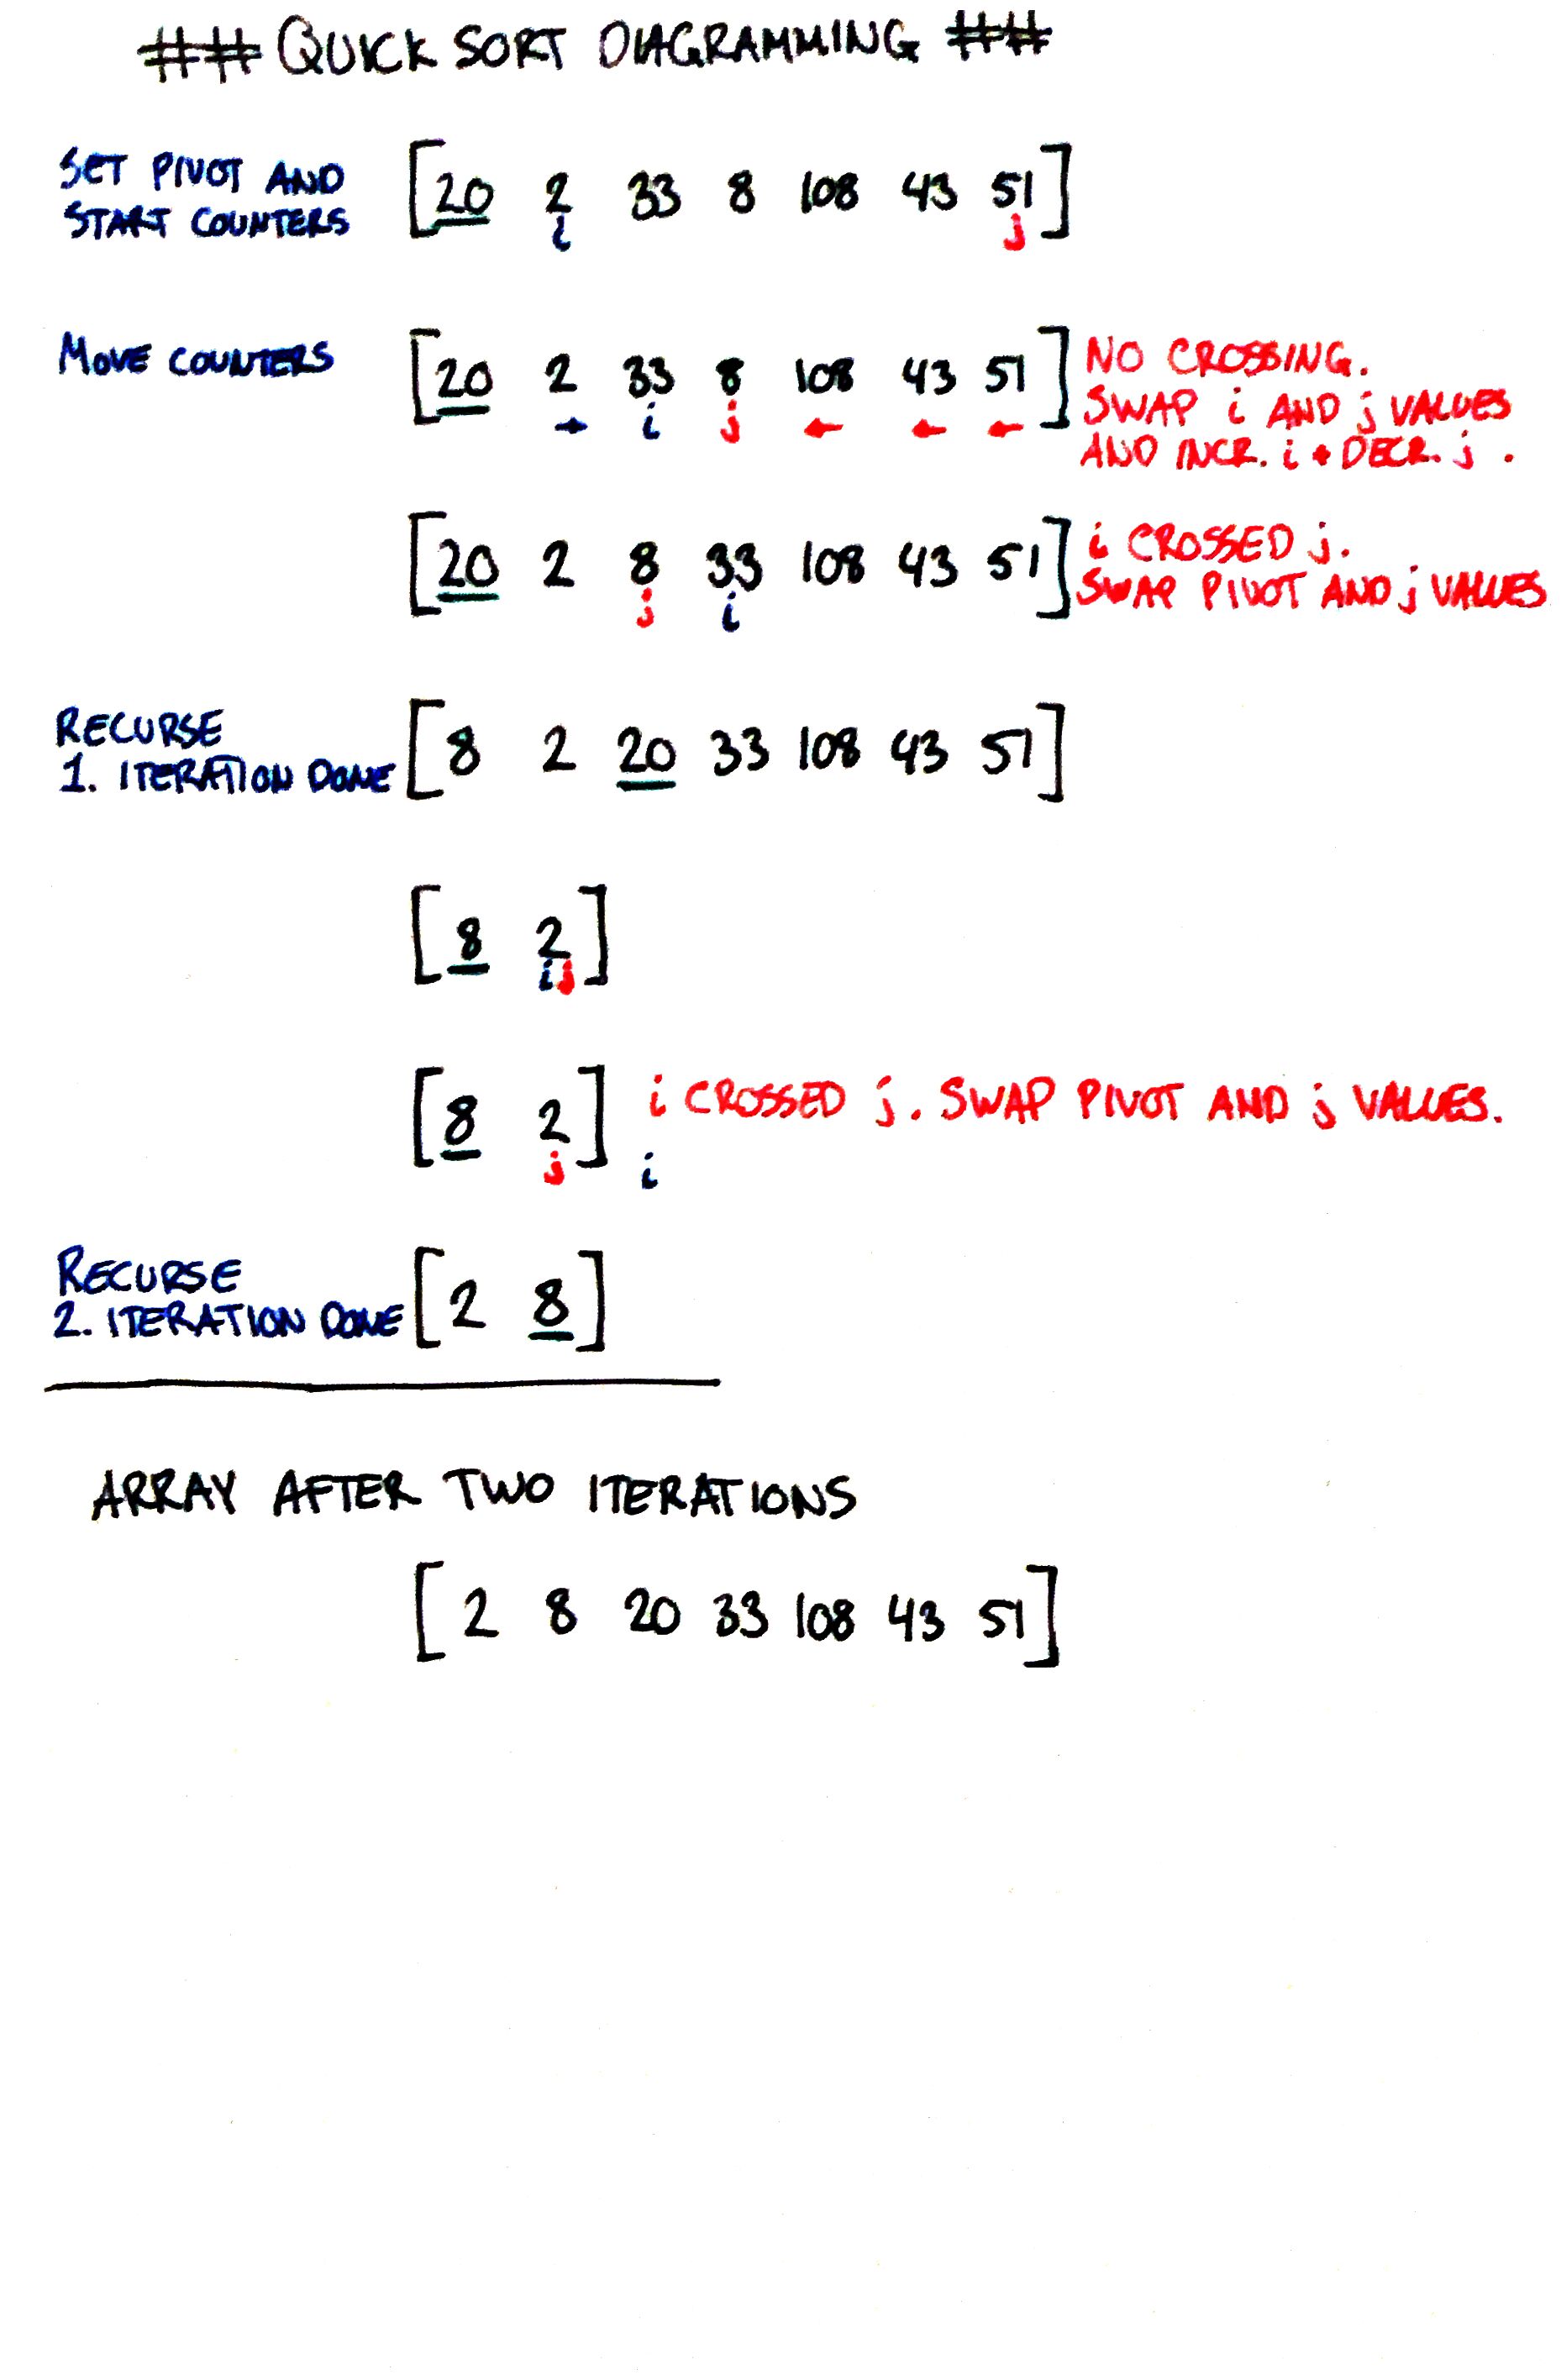 ## QUICK SORT DIAGRAMMING ##
SET PIVOT AND
START COUNTERS
[20 2 33 8 108 43 51]
i j
MOVE COUNTERS
[20 2 33 8 108 43 51]
→ i j ← ← ←
NO CROSSING.
SWAP i AND j VALUES
AND INCR. i + DECR. j .
[20 2 8 33 108 43 51]
j i
i CROSSED j.
SWAP PIVOT AND j VALUES
RECURSE
1. ITERATION DONE
[8 2 20 33 108 43 51]
[8 2]
i j
[8 2]
j i
i CROSSED j. SWAP PIVOT AND j VALUES.
RECURSE
2. ITERATION DONE
[2 8]
ARRAY AFTER TWO ITERATIONS
[2 8 20 33 108 43 51]